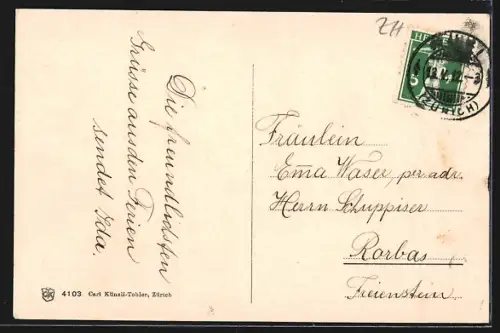 ZH
HELVETIA
5
(ZÜRICH)
Die freundlichsten
Grüsse aus den Ferien
sendet Ida.
Fräulein
Emma Waser, per adr.
Herrn Schuppiser
Rorbas
Freienstein.
4103 Carl Künzli-Tobler, Zürich